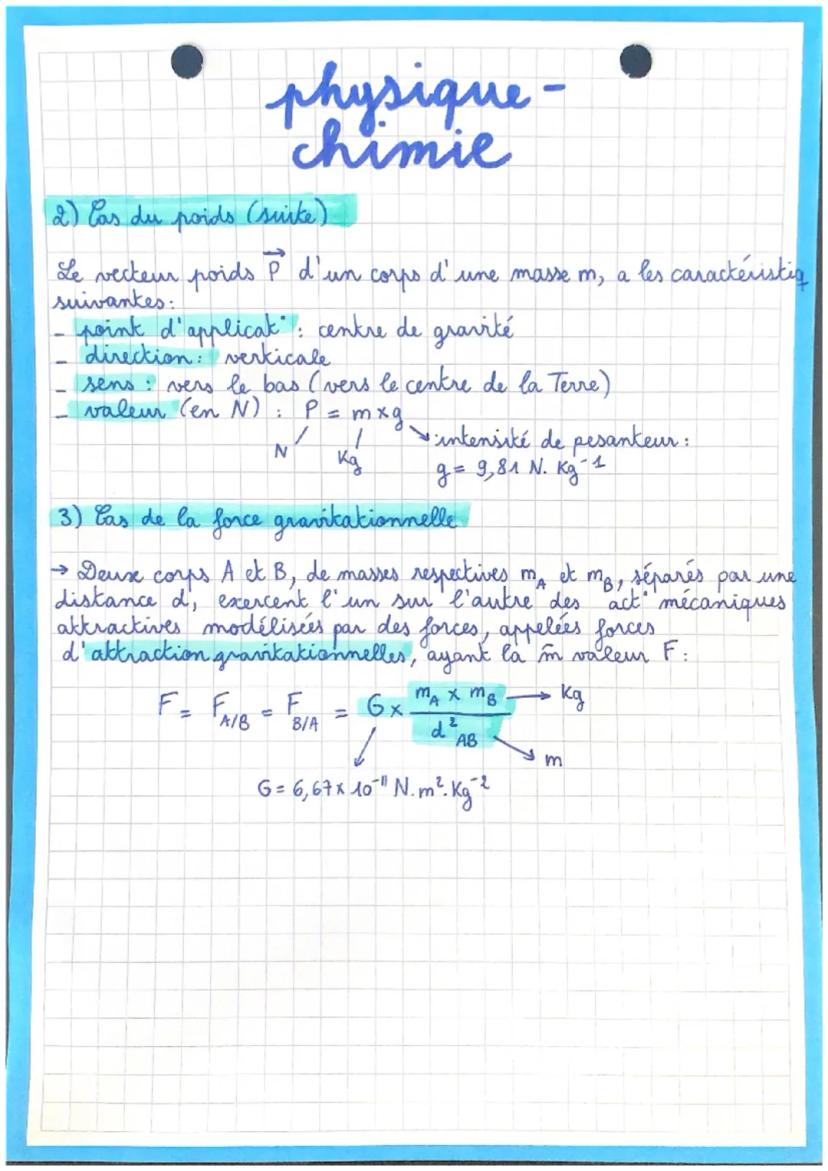 physique-
chimie
2) Cas du poids (suite)
Le vecteur poids P⃗ d'un corps d'une masse m, a les caractéristiq
suivantes:
- point d'applicat° : centre de gravité
- direction : verticale
- sens : vers le bas (vers le centre de la Terre)
- valeur (en N) : P = m x g
N Kg intensité de pesanteur :
g = 9,81 N. Kg⁻¹
3) Cas de la force gravitationnelle
→ Deux corps A et B, de masses respectives m_A et m_B, séparés par une
distance d, exercent l'un sur l'autre des act° mécaniques
attractives modélisées par des forces, appelées forces
d'attraction gravitationnelles, ayant la m̂ valeur F :
F = F_A/B = F_B/A = G x (m_A x m_B)/(d²_AB) → Kg
m
G = 6,67 x 10⁻¹¹ N.m².Kg⁻²